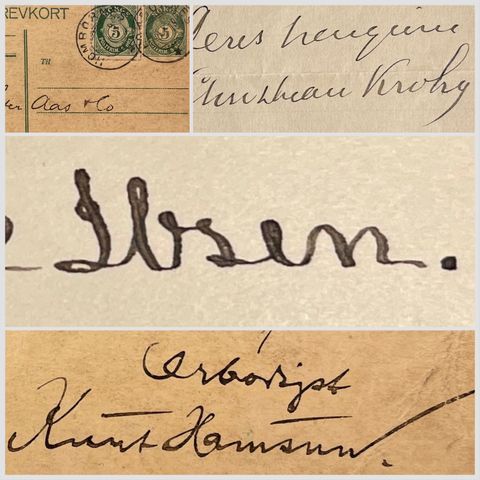 REVKORT
TIL
Aas & Co
5
5
Deres hengivne
Christian Krohg
Ibsen.
Ærbødigst
Knut Hamsun.